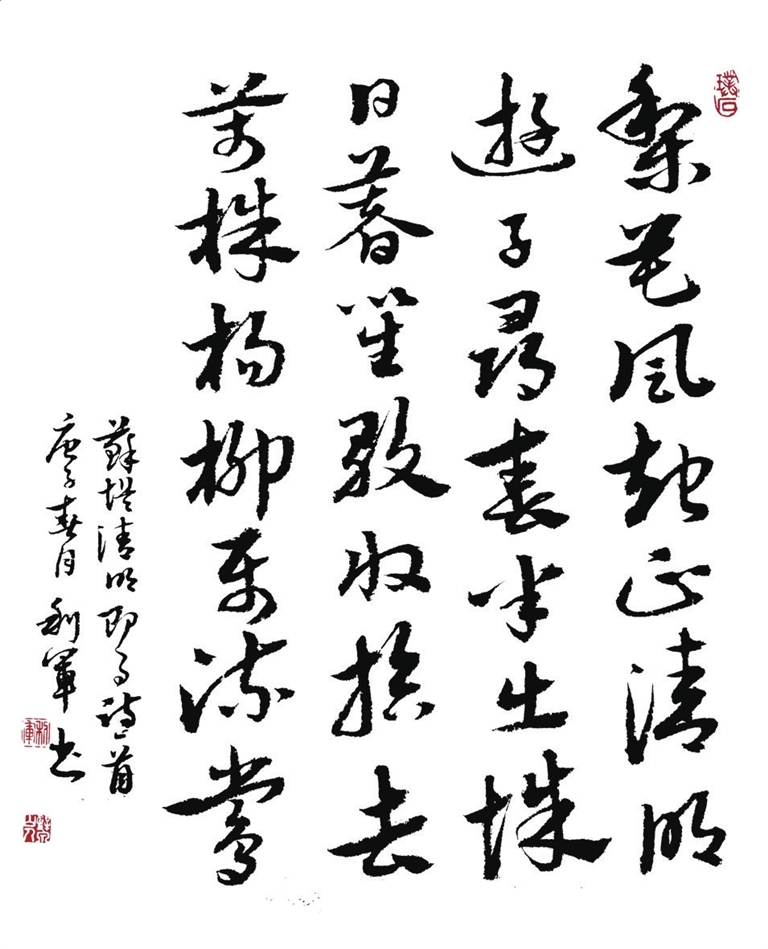 梨花風起正清明
遊子尋春半出城
日暮笙歌收拾去
萬株楊柳屬流鶯
蘇堤清明即事詩一首
庚子春月利軍書
利軍